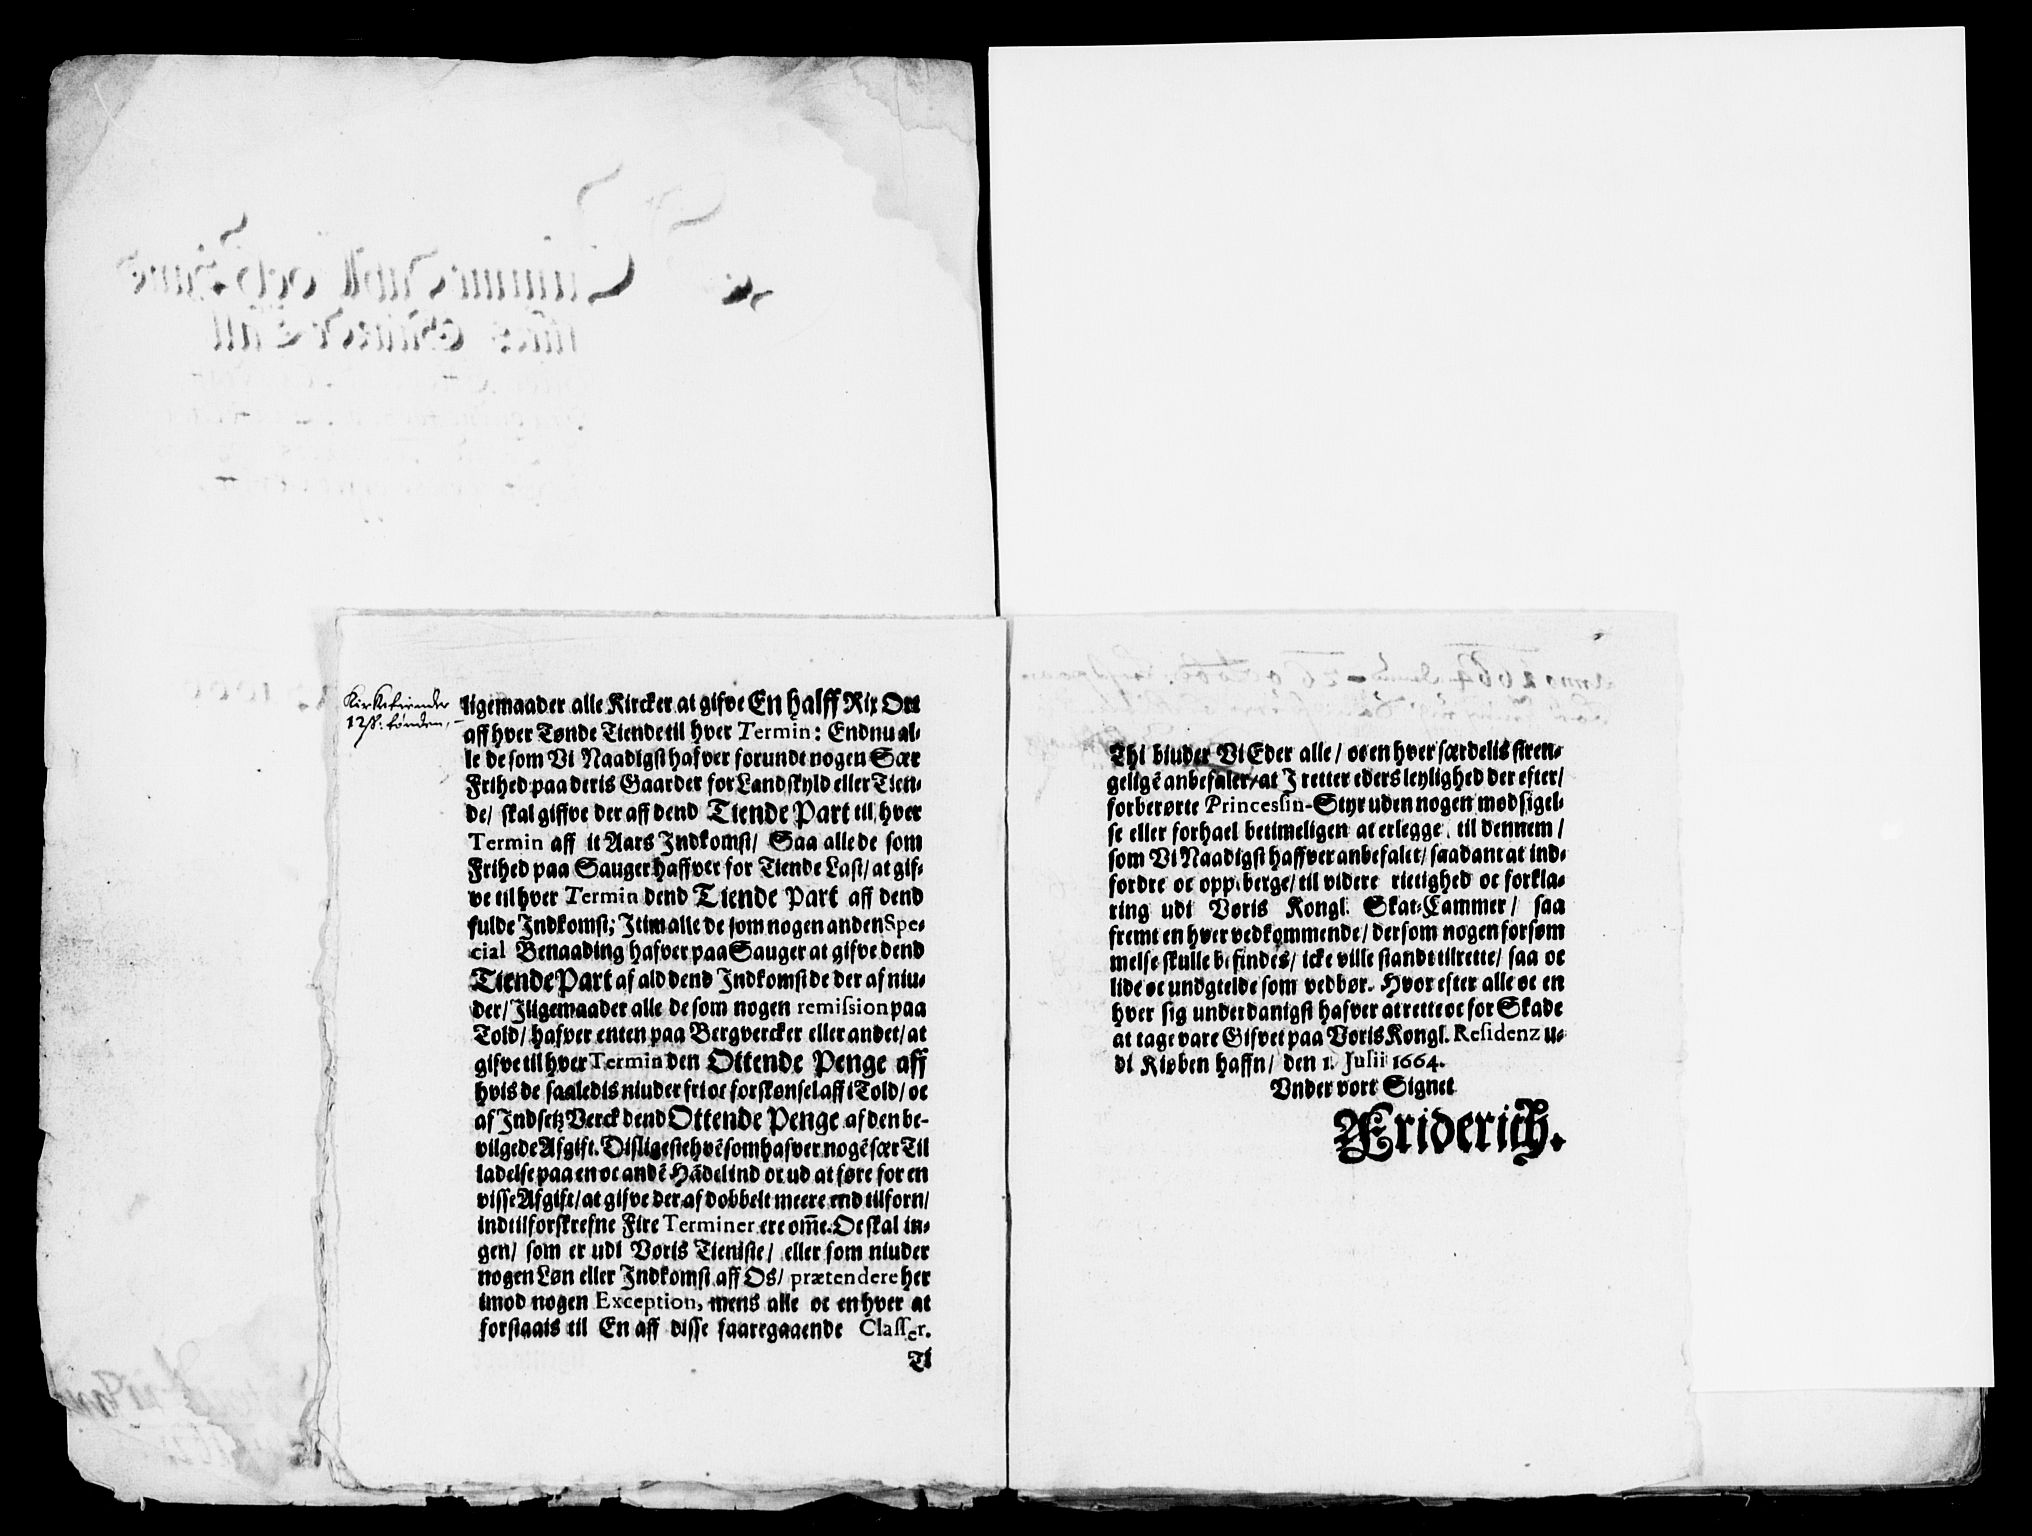 Kirketiender
12 ß. tønden,
ligemaader alle Kircker at gifve En halff Rix Ort
aff hver Tønde Tiende til hver Termin: Endnu al-
le de som Vi Naadigst hafver forundt nogen Sær
Frihed paa deris Gaarder for Landskyld eller Tien-
de/ skal giffve der aff dend Tiende Part til hver
Termin aff it Aars Indkomst/ Saa alle de som
Frihed paa Sauger haffver for Tiende Last/ at gif-
ve til hver Termin dend Tiende Part aff dend
fulde Indkomst; Item alle de som nogen anden Spe-
cial Benaading hafver paa Sauger at gifve dend
Tiende Part af ald dend Indkomst de der af niu-
der/ Iligemaader alle de som nogen remission paa
Told/ hafver enten paa Bergvercker eller andet/ at
gifve til hver Termin den Ottende Penge aff
hvis de saaledis niuder fri oc forskønsel aff i Told/ oc
af Indsetz Verck dend Ottende Penge af den be-
vilgede Afgift. Disligeste hvē som hafver nogē sær Til
ladelse paa en oc andē Hādel ind oc ud at føre for en
visse Afgift/ at gifve der af dobbelt meere end tilforn/
indtil forskrefne Fire Terminer ere om̄e. Oc skal in-
gen/ som er udi Voris Tieniste/ eller som niuder
nogen Løn eller Indkomst aff Os/ prætendere her
imod nogen Exception, mens alle oc en hver at
forstaais til En aff disse faaregaaende Classer.
Ti
Thi biuder Vi Eder alle/ oc en hver særdelis stren-
geligē anbefaler/ at I retter eders leylighed der efter/
forberørte Princessin-Styr uden nogen modsigel-
se eller forhael betimeligen at erlegge til dennem/
som Vi Naadigst haffver anbefalet/ saadant at ind-
fordre oc oppeberge/ til videre rictighed oc forkla-
ring udi Voris Kongl. Skat-Cammer/ saa
fremt en hver vedkommende/ dersom nogen forsøm
melse skulle befindes/ icke ville stande til rette/ saa oc
lide oc undgielde som vedbør. Hvor efter alle oc en
hver sig underdanigst hafver at rette oc for Skade
at tage vare Gifvet paa Voris Kongl. Residenz u-
di Kiøbenhaffn/ den 1. Julii 1664.
Vnder vort Signet
Friderich.